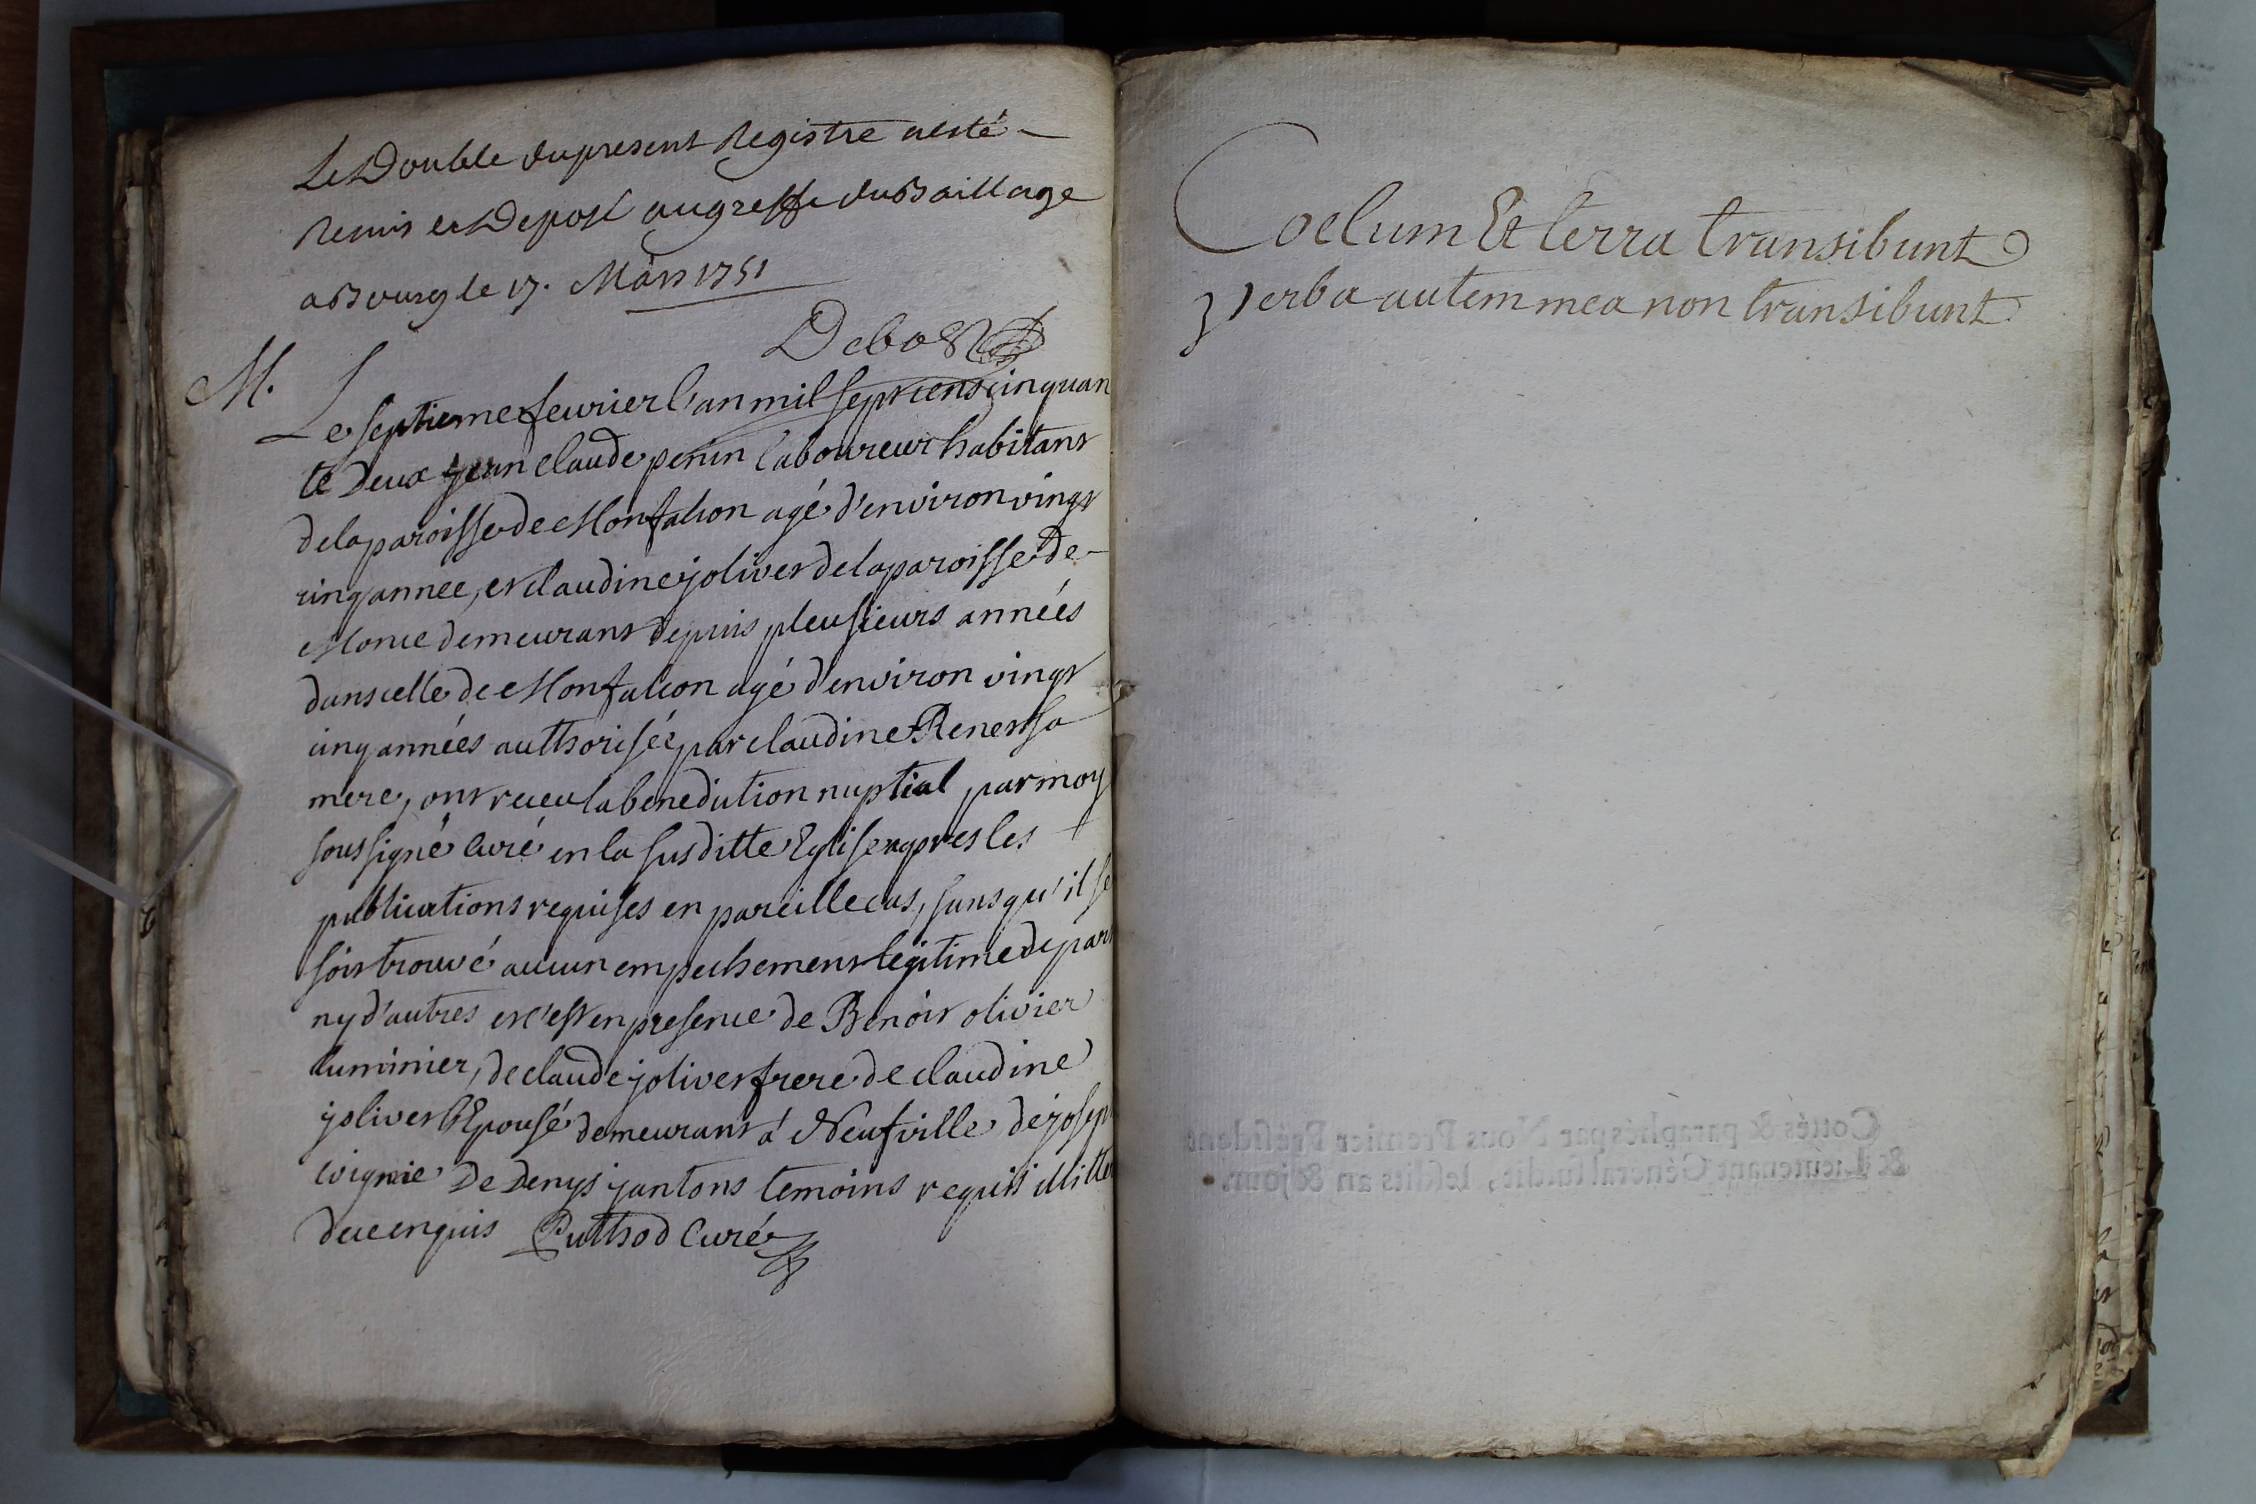 Le Double du present Registre a esté
Remis et Deposé au greffe du Bailliage
a Bourg le 17. Mars 1751
M. Le septieme feurier l'an mil sept cens cinquan
te Deux jean claude penin laboureur habitant
de la paroisse de Monfalcon agé d'environ vingt
cinq annee, et claudine jolivet de la paroisse de
demeurant depuis pleusieurs années
dans celle de Monfalcon agé d'environ vingt
cinq années authorisée par claudine Renest sa
mere, ont receu la benediction nuptial par moy
soussigné Curé en la susditte Eglise apres les
publications requises en pareille cas, sans qu'il se
soit trouvé aucun empechement legitime de part
ny d'autres et c'est en presence de Benoit olivier
luminier, de claude jolivet frere de claudine
jolivet l'Epousé demeurant á Neufville de joseph
de Denys jantons temoins requis illitte
de ce enquis Puthod Curé
Coelum Et terra transibunt
verba autem mea non transibunt
Cottés & paraphés par Nous Premier Président
& Lieutenant Géneral susdit, lesdits an & jour.